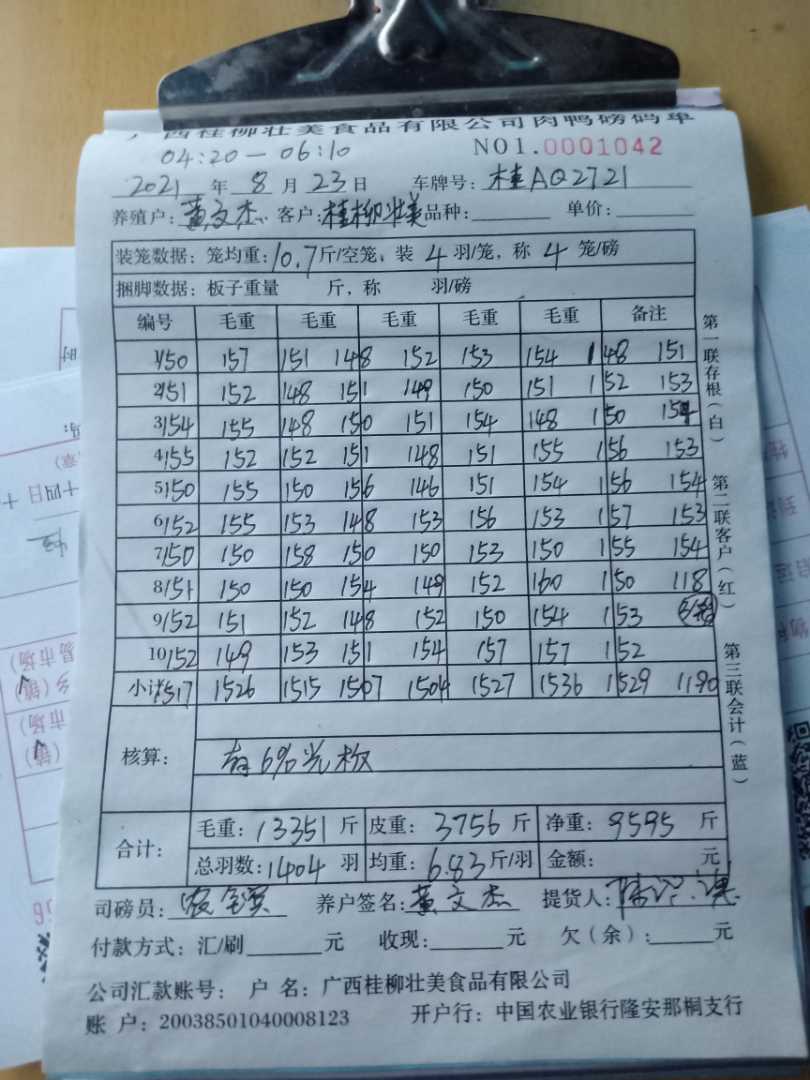 广西桂柳壮美食品有限公司肉鸭磅码单
04:20 — 06:10 NO1.0001042
2021 年 8 月 23 日 车牌号: 桂AQ2721
养殖户: 黄文杰 客户: 桂柳壮美 品种: 单价:
装笼数据: 笼均重: 10.7 斤/空笼、装 4 羽/笼, 称 4 笼/磅
捆脚数据: 板子重量 斤, 称 羽/磅
编号 毛重 毛重 毛重 毛重 毛重 备注
1 150 157 151 148 152 153 154 148 151
2 151 152 148 151 149 150 151 152 153
3 154 155 148 150 151 154 148 150 154
4 155 152 152 151 148 151 155 156 153
5 150 155 150 156 146 151 154 156 154
6 152 155 153 148 153 156 153 157 153
7 150 150 158 150 150 153 150 155 154
8 151 150 150 154 149 152 160 150 118
9 152 151 152 148 152 150 154 153
10 152 149 153 151 154 157 157 152
小计 1517 1526 1515 1507 1504 1527 1536 1529 1190
第一联存根(白)
第二联客户(红)
第三联会计(蓝)
核算: 有6%光板
合计: 毛重: 13351 斤 皮重: 3756 斤 净重: 9595 斤
总羽数: 1404 羽 均重: 6.83 斤/羽 金额: 元
司磅员: 养户签名: 黄文杰 提货人:
付款方式: 汇/刷 元 收现: 元 欠(余): 元
公司汇款账号: 户 名: 广西桂柳壮美食品有限公司
账 户: 20038501040008123 开户行: 中国农业银行隆安那桐支行